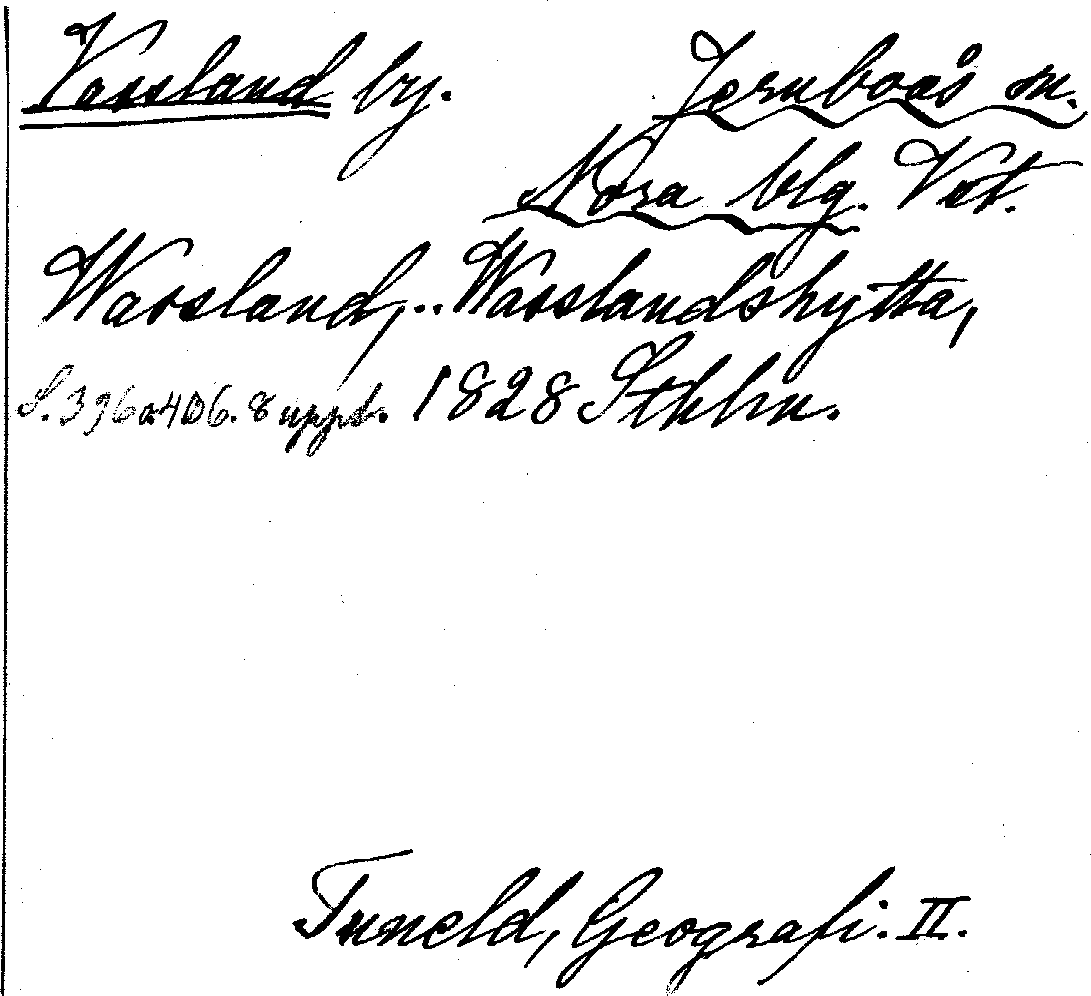 Vassland by. Jernboås sn.
Nora blg. Vst.
Wassland, .. Wasslandshytta,
S. 396 o. 406. 8 uppl. 1828 Sthlm.
Tuneld, Geografi. II.